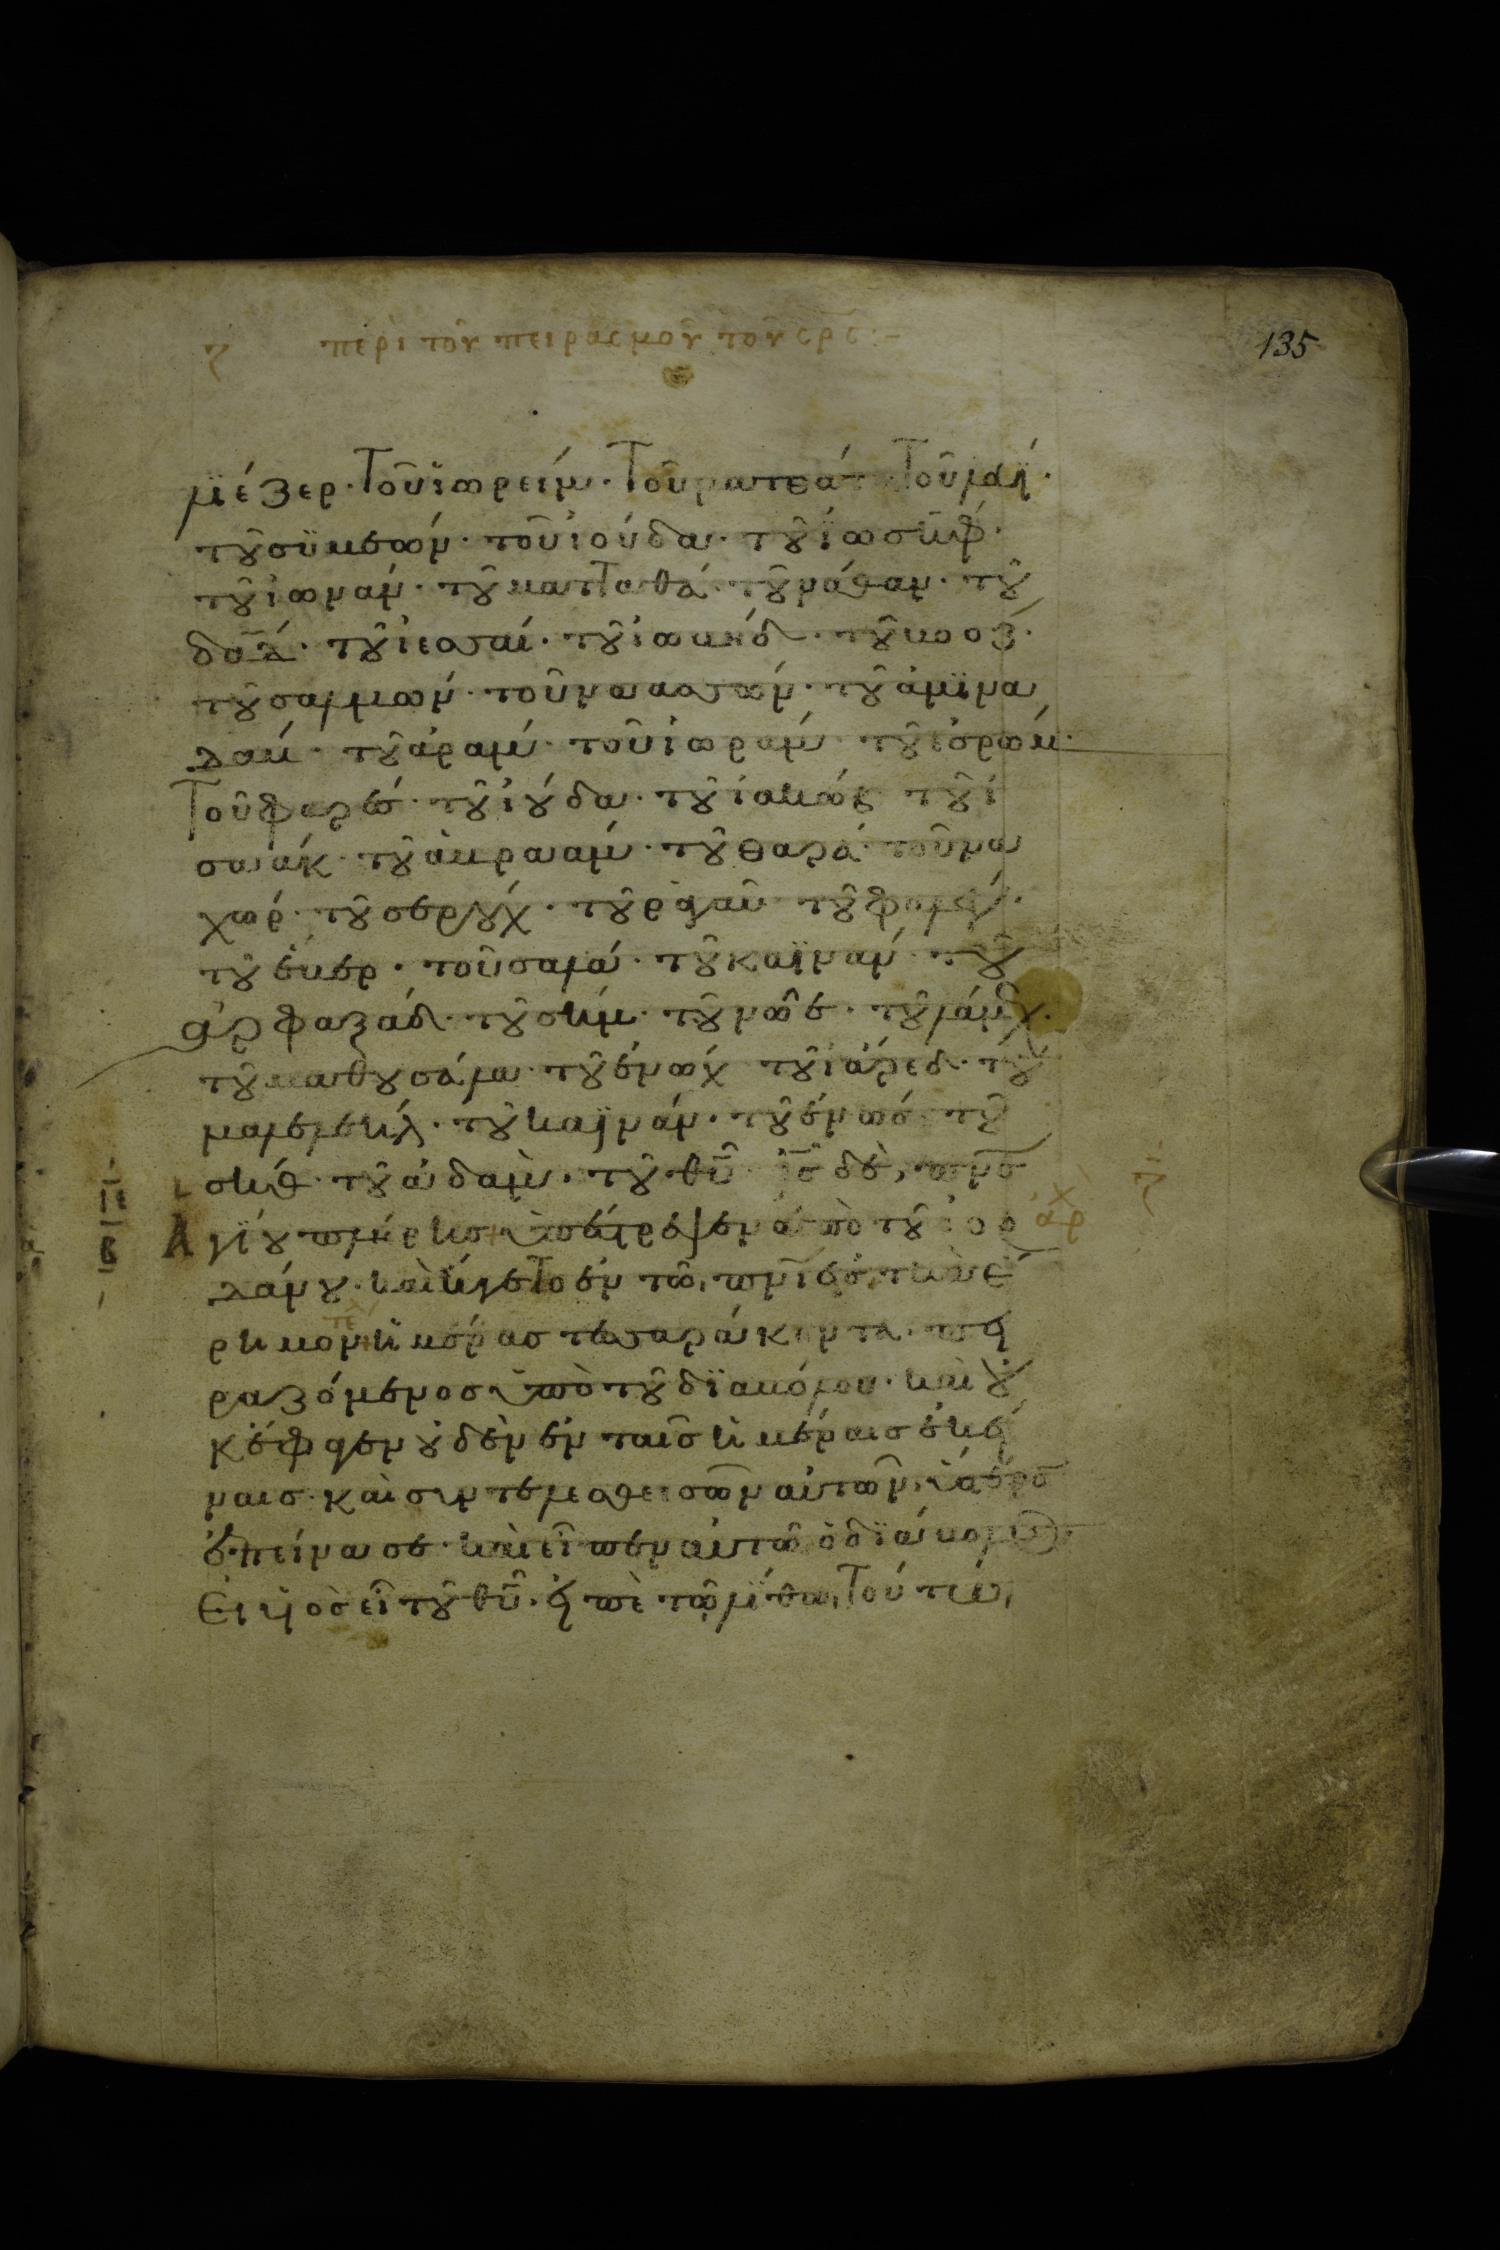 ζ περὶ τοῦ πειρασμοῦ τοῦ σ̅ρ̅ς̅ :–
135
λϊέζερ· τοῦ ἰωρείμ· τοῦ ματθάτ· τοῦ λευῒ·
τοῦ συμεών· τοῦ ἰούδα· τοῦ ἰωσήφ·
τοῦ ἰωνάν· τοῦ ματταθά· τοῦ νάθαν· τοῦ
δα̅δ̅· τοῦ ἰεσσαί· τοῦ ἰωβήδ· τοῦ βοόζ·
τοῦ σαλμών· τοῦ ναασσών· τοῦ ἀμϊνα
δάβ· τοῦ ἀράμ· τοῦ ἰωράμ· τοῦ ἐσρώμ·
τοῦ φαρές· τοῦ ἰούδα· τοῦ ἰακώβ τοῦ ἰ
σαάκ· τοῦ ἀβραάμ· τοῦ θαρά· τοῦ να
χώρ· τοῦ σερούχ· τοῦ ῥαγαῦ τοῦ φαλέγ·
τοῦ ἔβερ· τοῦ σαλά· τοῦ καϊνάν· τοῦ
ἀρφαξάδ· τοῦ σήμ· τοῦ νῶε· τοῦ λάμεχ·
τοῦ μαθουσάλα· τοῦ ἐνώχ τοῦ ἰάρεδ· τοῦ
μαλελεήλ· τοῦ καϊνάν· τοῦ ἐνώς· τοῦ
σήθ· τοῦ ἀδάμ· τοῦ θ̅υ̅· ι̅ς̅ δὲ, π̅ν̅ς̅
ἁγίου πλήρης ὑπέστρεψεν ἀπὸ τοῦ ἰορ ἀρχ
δάνου· καὶ ἤγετο ἐν τῶ π̅ν̅ι̅ εἰς τὴν ἔ
ρημον ἡμέρας τεσσαράκοντα· πει
ραζόμενος ὑπὸ τοῦ διαβόλου· καὶ οὐ
κ ἔφαγεν οὐδὲν ἐν ταῖς ἡμέραις ἐκεί
ναις· καὶ συντελεσθεισῶν αὐτῶν, ὕστερον
ἐπείνασε· καὶ εἶπεν αὐτῶ ὁ διάβολος·
Εἰ υἱὸς εἶ τοῦ θ̅υ̅· εἰπὲ τῶ λίθω τούτω,
ιε
β
τελ
ζ